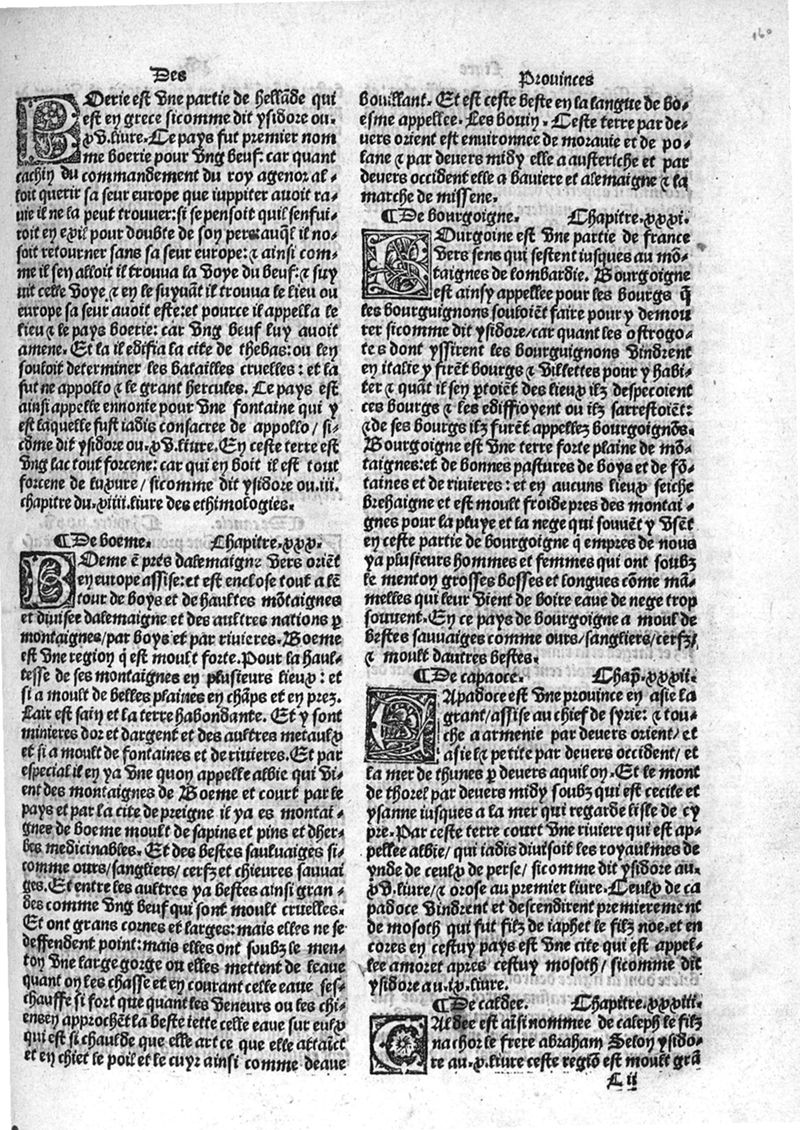 160
Des
Prouinces
BOerie est vne partie de hellãde qui
est en grece sicomme dit ysidore ou.
xv. liure. Ce pays fut premier nom
me boerie pour vng beuf: car quant
cachin du commandement du roy agenor al-
loit querir sa seur europe que iuppiter auoit ra-
uie il ne la peut trouuer: si se pensoit quil senfui-
roit en exil pour doubte de son pere auq̃l il no-
soit retourner sans sa seur europe: ⁊ ainsi com-
me il sen alloit il trouua la voye du beuf: ⁊ suy
uit celle voye ⁊ en le suyuãt il trouua le lieu ou
europe sa seur auoit este: et pource il appella le
lieu ⁊ le pays boerie: car vng beuf luy auoit
amene. Et la il edifia la cite de thebas: ou len
souloit determiner les batailles cruelles: et la
fut ne appollo ⁊ le grant hercules. Ce pays est
ainsi appelle ennonie pour vne fontaine qui y
est laquelle fust iadis consacree de appollo/ si-
cõme dit ysidore ou. xv. liure. En ceste terre est
vng lac tout forcene: car qui en boit il est tout
forcene de luxure/ sicomme dit ysidore ou. iii.
chapitre du. xiiii. liure des ethimologies.
¶ De boeme. Chapitre. xxx.
BOeme ẽ pres dalemaigne vers oriẽt
en europe assise: et est enclose tout a lẽ
tour de boys et de haultes mõtaignes
et diuisee dalemaigne et des aultres nations ꝑ
montaignes/ par boys et par riuieres. Boeme
est vne region q̃ est moult forte. Pour la haul-
tesse de ses montaignes en plusieurs lieux: et
si a moult de belles plaines en chãps et en prez.
Lair est sain et la terre habondante. Et y sont
minieres dor et dargent et des aultres metaulx
et si a moult de fontaines et de riuieres. Et par
especial il en ya vne quon appelle albie qui vi-
ent des montaignes de Boeme et court par le
pays et par la cite de preigne il ya es montai-
gnes de boeme moult de sapins et pins et dher-
bes medicinables. Et des bestes sauluaiges si-
comme ours/ sangliers/ cerfz et chieures sauuai
ges. Et entre les aultres ya bestes ainsi gran-
des comme vng beuf qui sont moult cruelles.
Et ont grans cornes et larges: mais elles ne se
deffendent point: mais elles ont soubz le men-
ton vne large gorge ou elles mettent de leaue
quant on les chasse et en courant celle eaue ses-
chauffe si fort que quant les veneurs ou les chi-
ens en approchẽt la beste iette celle eaue sur eulx
qui est si chaulde que elle art ce que elle attaict
et en chiet le poil et le cuyr ainsi comme de aue
bouillant. Et est ceste beste en la langue de bo-
esme appellee. Les bouin. Ceste terre par de-
uers orient est enuironnee de morauie et de po-
lane ⁊ par deuers midy elle a austeriche et par
deuers occident elle a bauiere et alemaigne ⁊ la
marche de missene.
¶ De bourgoigne. Chapitre. xxxi.
BOurgoine est vne partie de france
vers sens qui sestent iusques au mõ-
taignes de lombardie. Bourgoigne
est ainsy appellee pour les bourgs q̃
les bourguignons souloiẽt faire pour y demou
rer sicomme dit ysidore/ car quant les ostrogo-
tes dont yssirent les bourguignons vindrent
en italie y firẽt bourgs ⁊ villettes pour y habi-
ter ⁊ quãt il sen ꝑtoiẽt des lieux ilz despecoient
ces bourgs ⁊ les ediffioyent ou ilz sarrestoiẽt:
⁊ de ses bourgs ilz furẽt appellez bourgoignõs.
Bourgoigne est vne terre forte plaine de mõ-
taignes: et de bonnes pastures de boys et de fõ-
taines et de riuieres: et en aucuns lieux seiche
brehaigne et est moult froide pres des montai-
gnes pour la pluye et la nege qui souuẽt y vsẽt
en ceste partie de bourgoigne q̃ empres de nous
ya plusieurs hommes et femmes qui ont soubz
le menton grosses bosses et longues cõme mã-
melles qui leur vient de boire eaue de nege trop
souuent. En ce pays de bourgoigne a moul de
bestes sauuaiges comme ours/ sangliers/ cerfz/
⁊ moult dautres bestes.
¶ De capaoce. Chap̃. xxxii.
CApadoce est vne prouince en asie la
grant/ assise au chief de syrie: ⁊ tou-
che a armenie par deuers orient/ et
asie la petite par deuers occident/ et
la mer de thunes ꝑ deuers aquilon. Et le mont
de thorel par deuers midy soubz qui est cecile et
ysanne iusques a la mer qui regarde lisle de cy
pre. Par ceste terre court vne riuiere qui est ap-
pellee albie/ qui iadis diuisoit les royaulmes de
ynde de ceulx de perse/ sicomme dit ysidore au.
xv. liure/ ⁊ orose au premier liure. Ceulx de ca
padoce vindrent et descendirent premierement
de mosoth qui fut filz de iaphet le filz noe. et en
cores en cestuy pays est vne cite qui est appel-
lee amoret apres cestuy mosoth/ sicomme dit
ysidore au. ix. liure.
¶ De caldee. Chapitre. xxxiii.
CAldee est aĩsi nommee de caleph le filz
nachor le frere abraham Selon ysido-
re au. x. liure ceste regiõ est moult grã
L ii